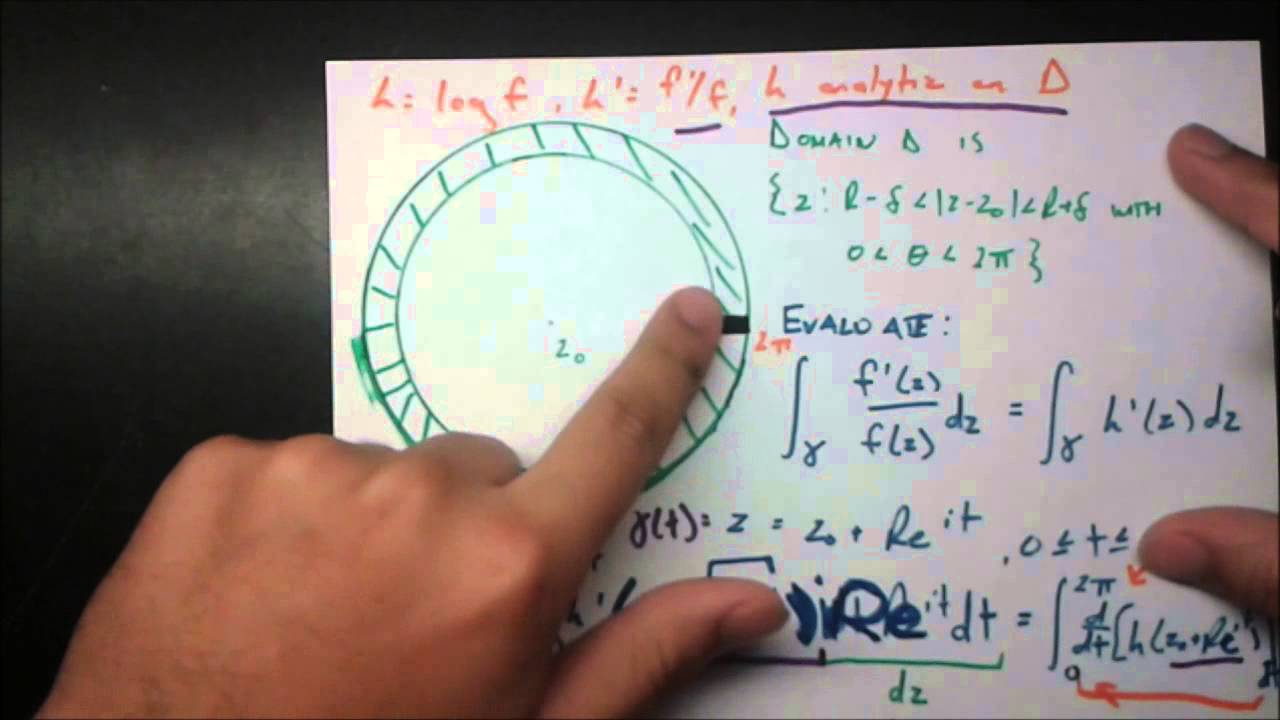 h = log f, h' = f'/f, h analytic on D
DOMAIN D IS
{z: R-δ<|z-z₀|<R+δ WITH
0 < θ < 2π}
z₀
2π
EVALUATE:
∫_γ f'(z)/f(z) dz = ∫_γ h'(z) dz
γ(t) = z = z₀ + Re^{it}, 0 ≤ t ≤
h'( ) iRe^{it} dt = ∫_0^{2π} d/dt [h(z₀+Re^{it})]
dz